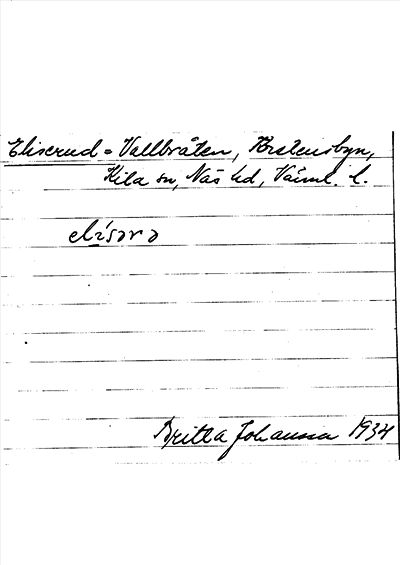 Eliserud = Vallbråten, Torstensbyn,
Kila sn, Näs hd, Värml. l.
elísərə
Britta Johansson 1934